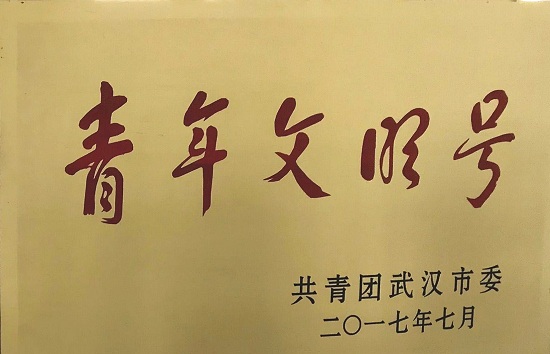 青年文明号
共青团武汉市委
二〇一七年七月